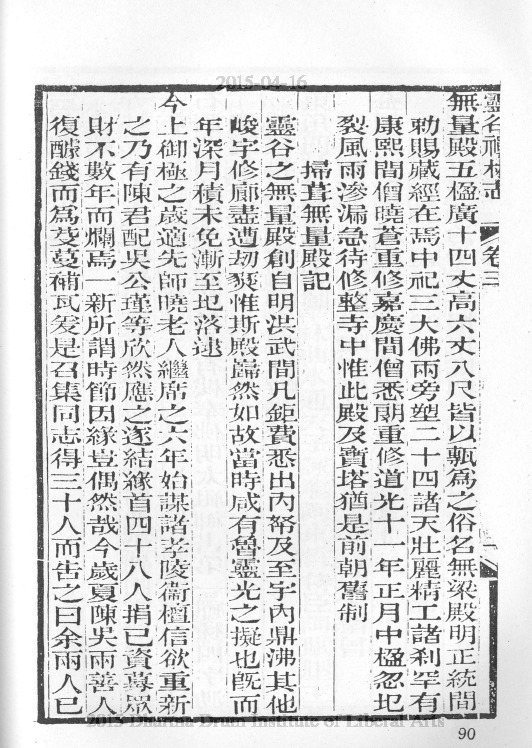 2015-04-16
靈谷禪林志 卷三
無量殿五楹廣十四丈高六丈八尺皆以甎為之俗名無梁殿明正統間
勑賜藏經在焉中祀三大佛兩旁塑二十四諸天壯麗精工諸剎罕有
康熙間僧曉蒼重修嘉慶間僧悉朗重修道光十一年正月中楹忽圮
裂風雨滲漏急待修整寺中惟此殿及寶塔猶是前朝舊制
掃葺無量殿記
靈谷之無量殿創自明洪武間凡鉅費悉出內帑及至宇內鼎沸其他
峻宇修廊盡遭劫燹惟斯殿巋然如故當時咸有魯靈光之擬也旣而
年深月積未免漸至圮落逮
今上御極之歲適先師曉老人繼席之六年始謀諸孝陵衞檀信欲重新
之乃有陳君配吳公瑾等欣然應之逐結緣首四十八人捐已資募眾
財不數年而爛焉一新所謂時節因緣豈偶然哉今歲夏陳吳兩善人
復醵錢而爲芟蔓補瓦爰是召集同志得三十人而告之曰余兩人已
2015 Dharma Drum Institute of Liberal Arts
90